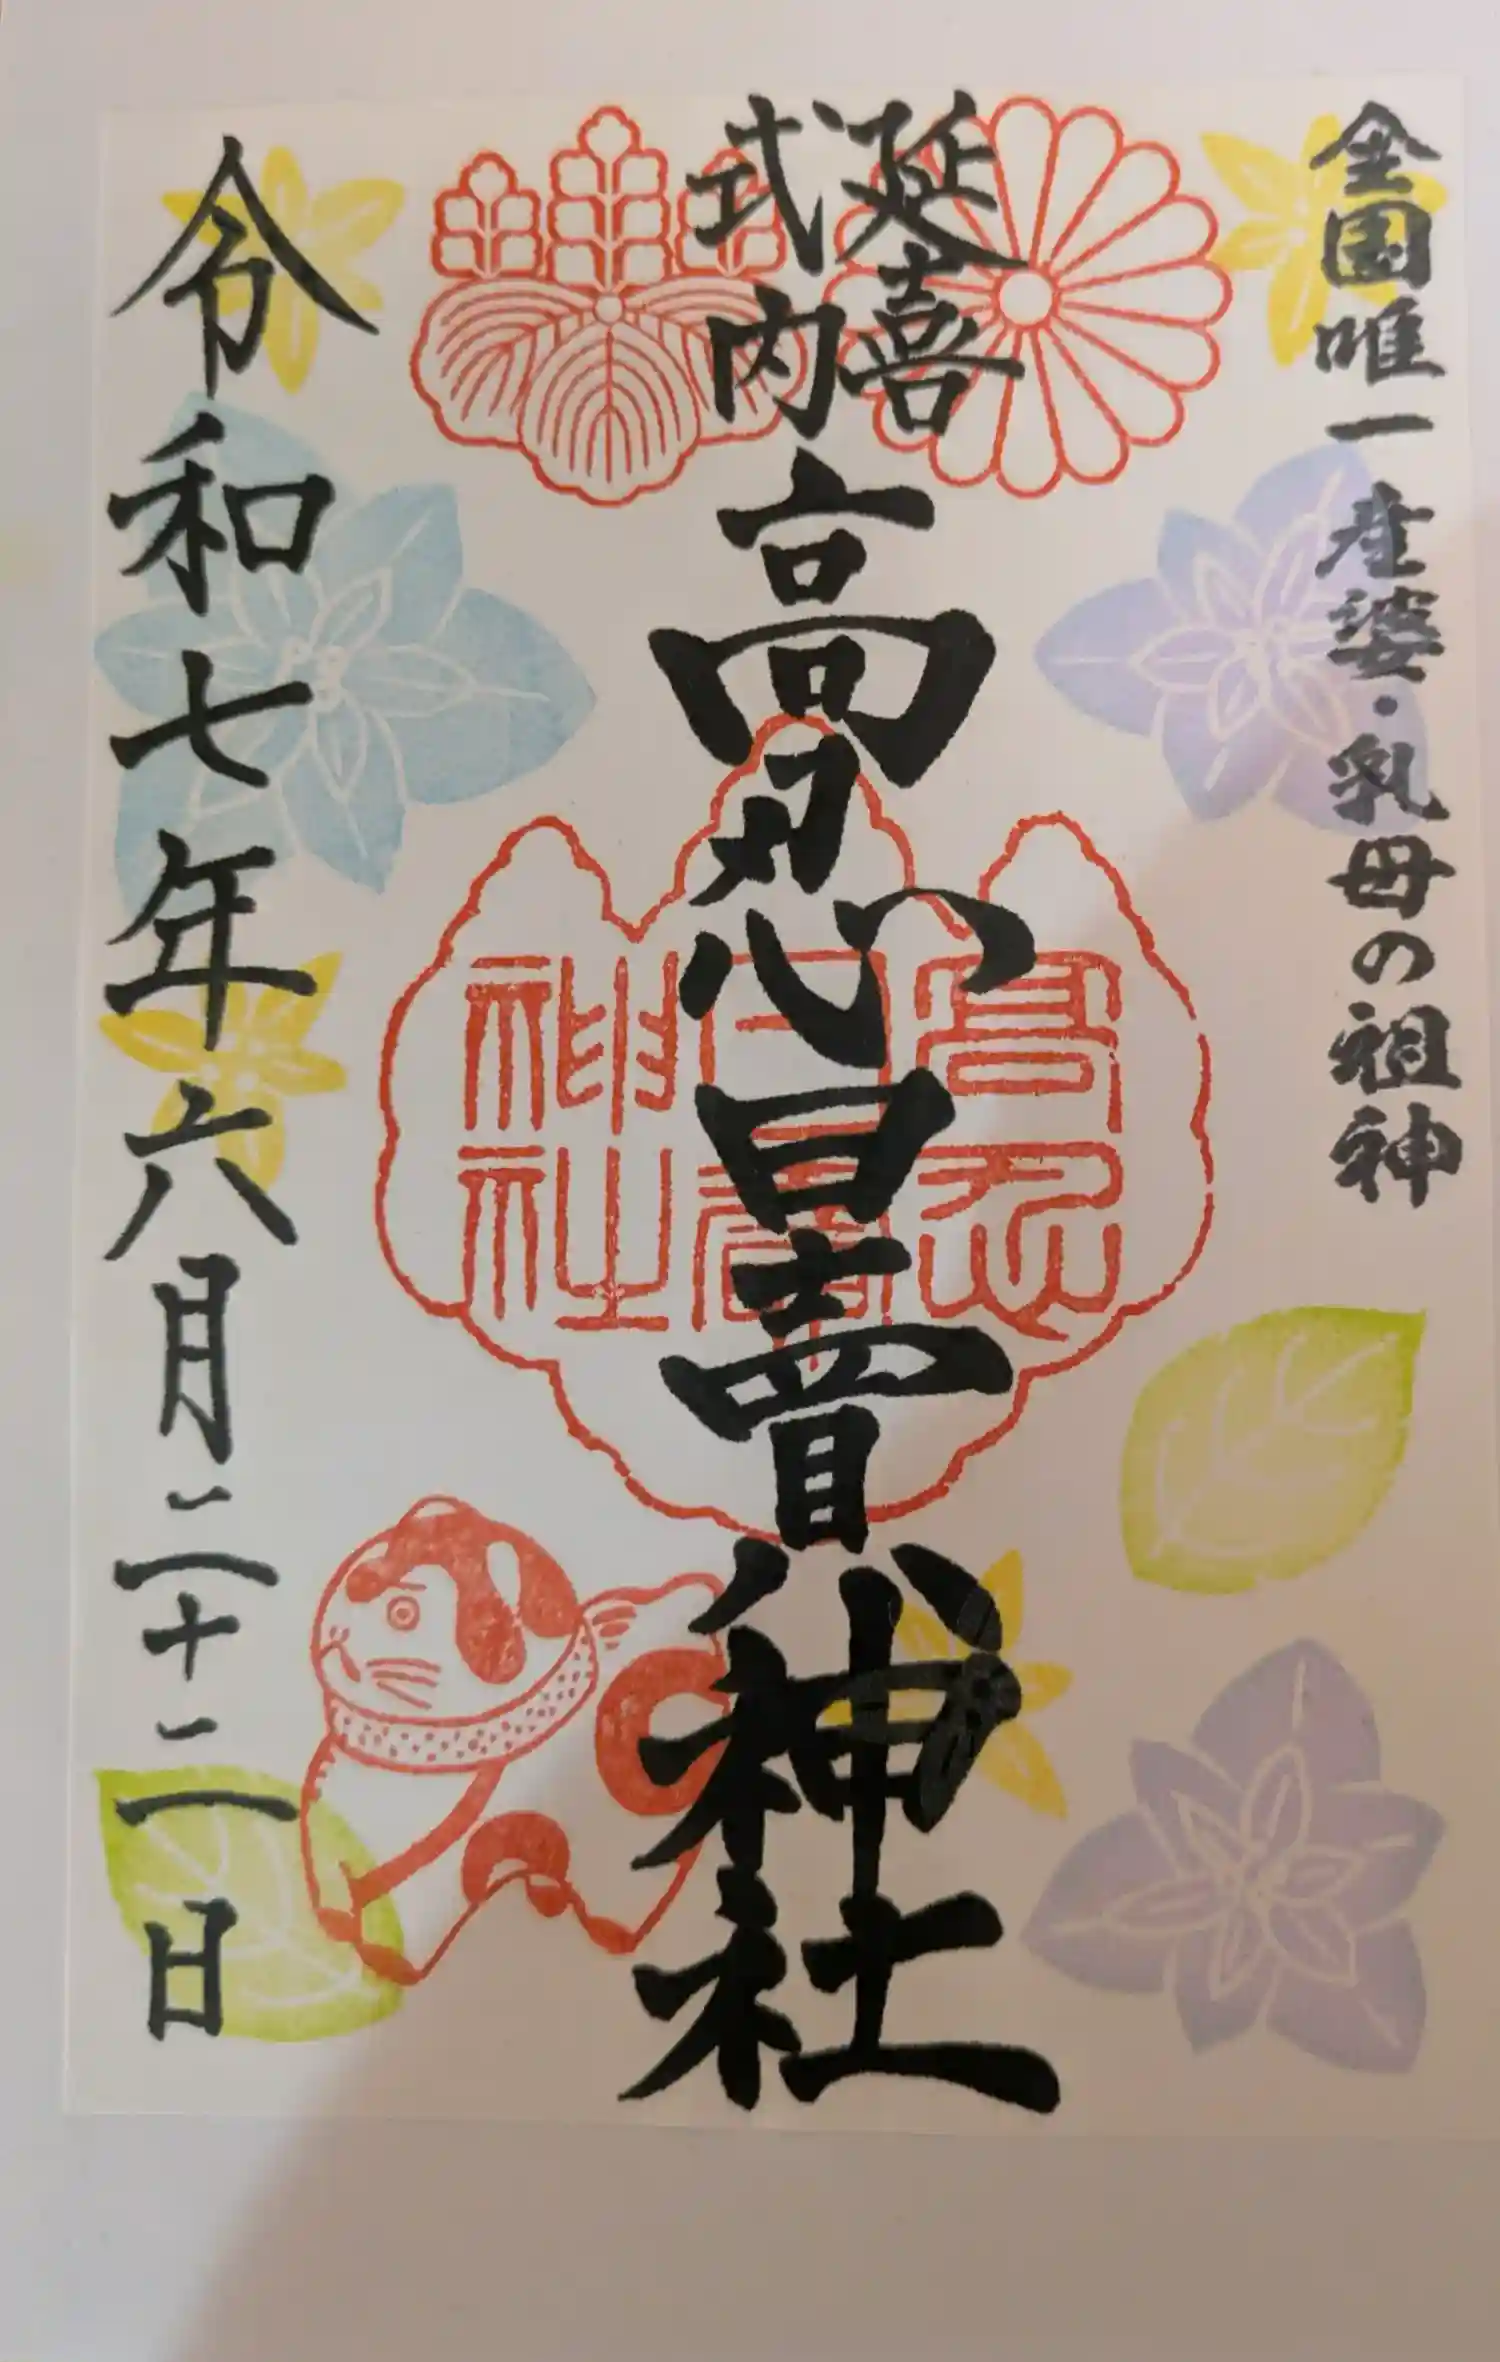 全国唯一産婆・乳母の祖神
延喜
式内
高忍日賣神社
高忍
日賣
神社
令和七年六月二十二日